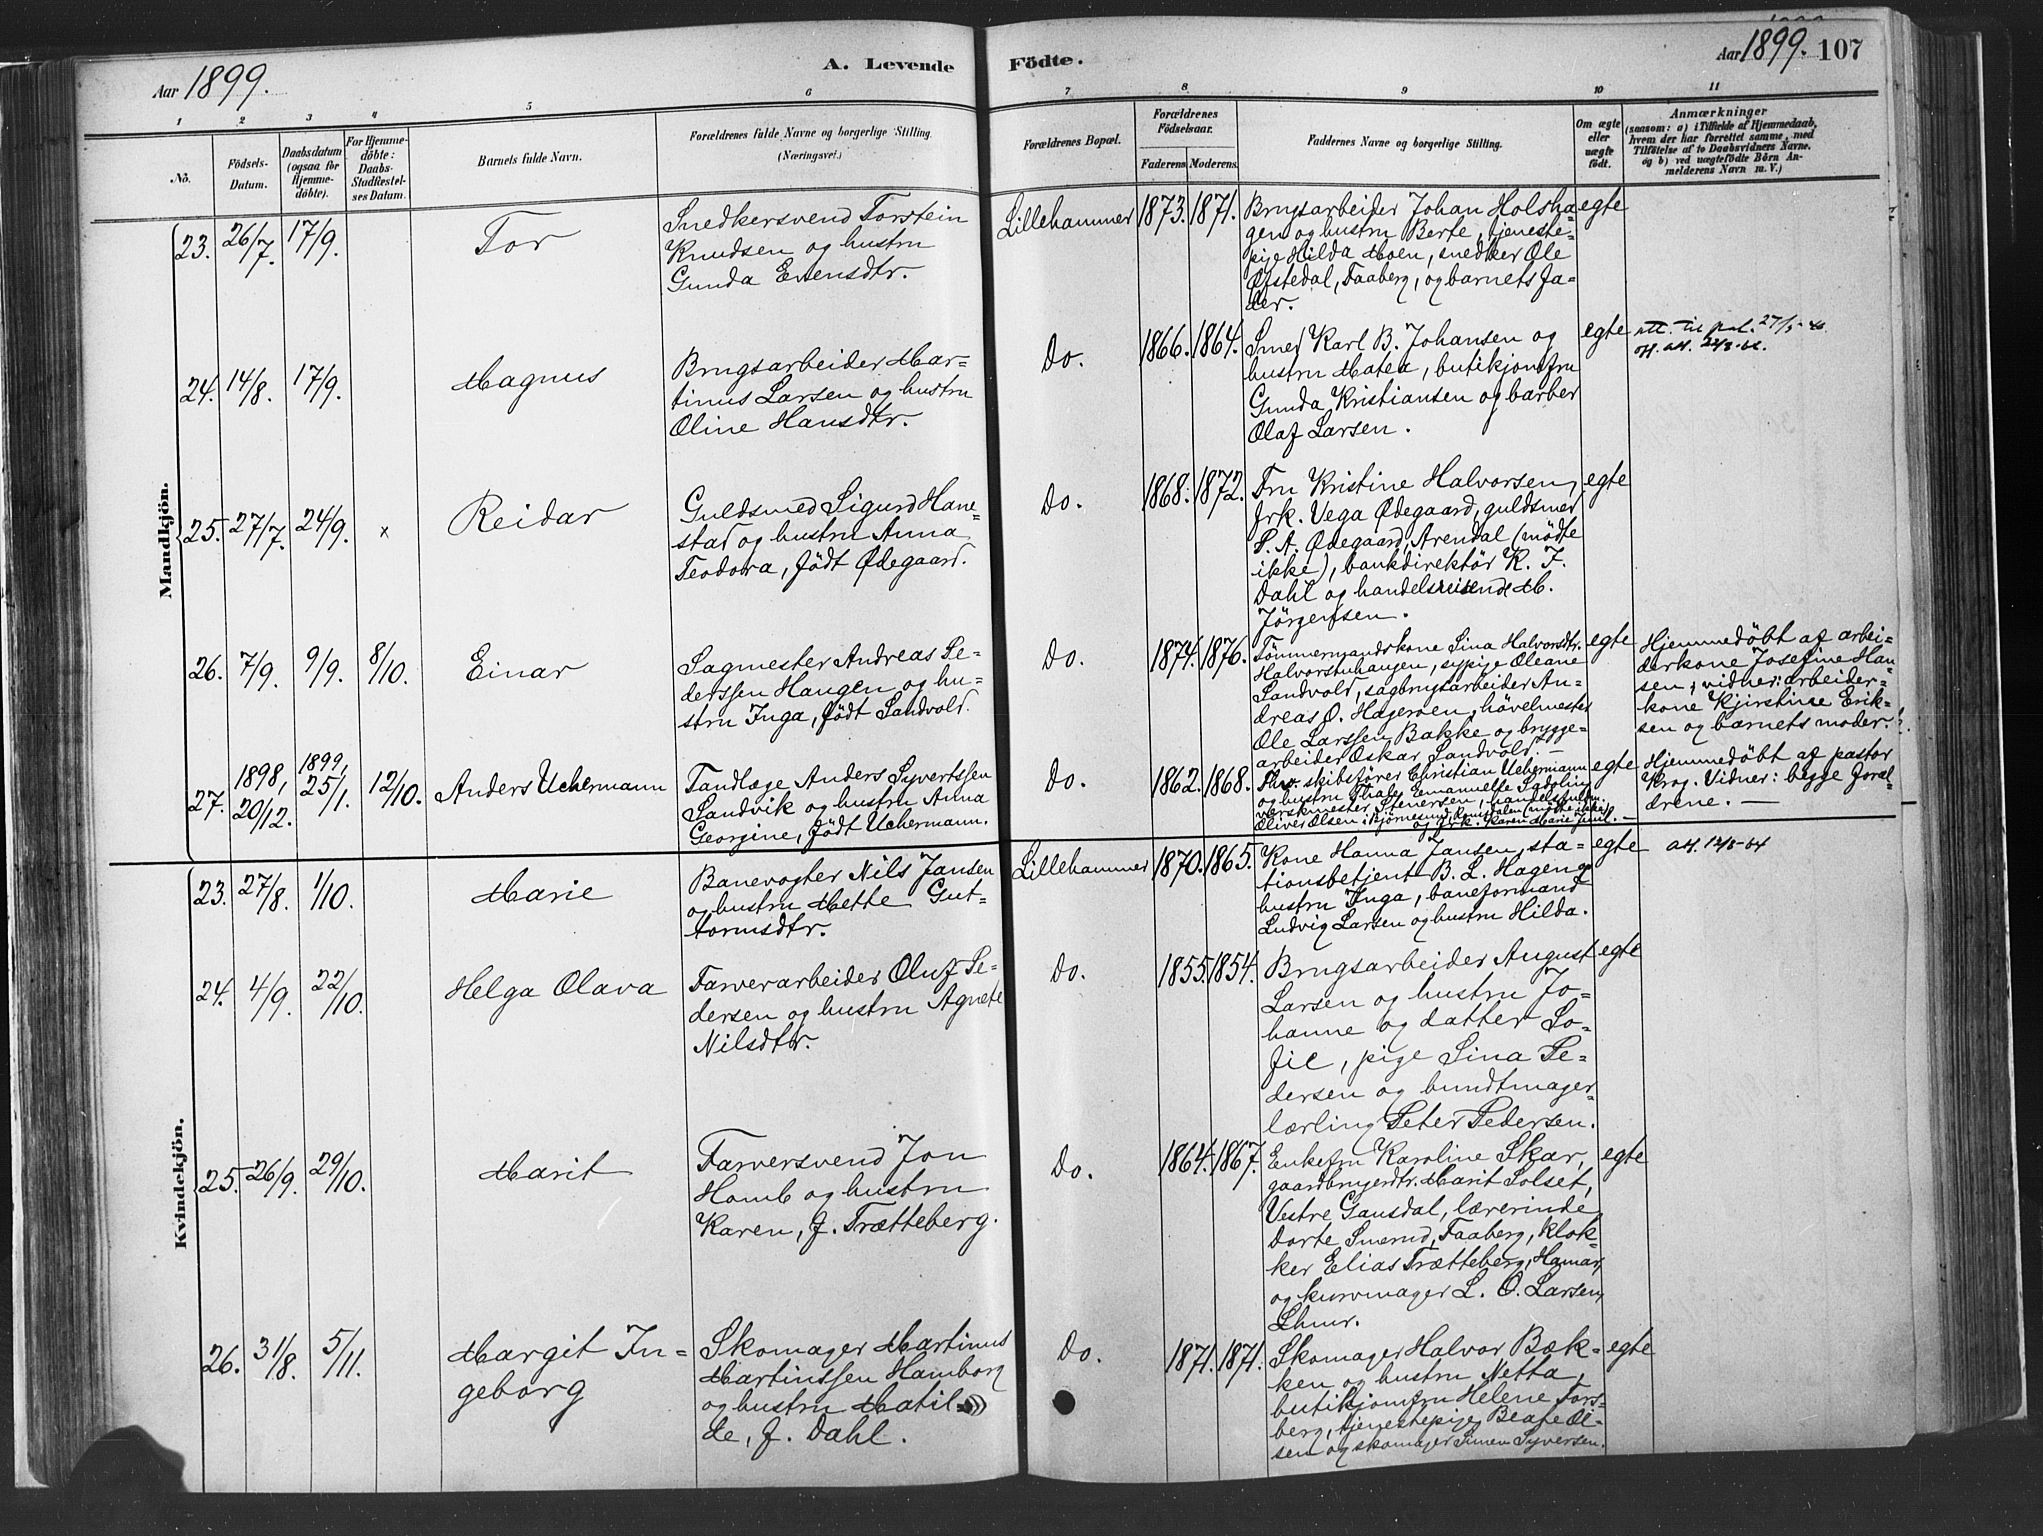 Aar 1899.
A. Levende
Födte.
Aar 1899. 107
1
2
3
4
5
6
7
8
9
10
11
No.
Födsels-
Datum.
Daabsdatum
(ogsaa for
Hjemme-
döbte).
For Hjemme-
döbte:
Daabs-
Stadfæstel-
ses Datum.
Barnets fulde Navn.
Forældrenes fulde Navne og borgerlige Stilling.
(Næringsvei.)
Forældrenes Bopæl.
Forældrenes
Födselsaar.
Faderens. Moderens.
Faddernes Navne og borgerlige Stilling.
Om ægte
eller
uægte
födt.
Anmærkninger
(saasom: a) i Tilfælde af Hjemmedaab,
hvem der har forrettet samme, med
Tilföielse af to Daabsvidners Navne.
og b) ved uægtefödte Börn An-
melderens Navn m. V.)
Mandkjön.
23. 26/7. 17/9.
Tor
Snedkersvend Torstein
Knudsen og hustru
Gunda Evensdtr.
Lillehammer 1873. 1871.
Brugsarbeider Johan Holsha-
gen og hustru Berte, tjeneste-
pige Hilda Moen, snedker Ole
Øfstedal, Faaberg, og barnets fa-
der.
egte
24. 14/8. 17/9.
Magnus
Brugsarbeider Mar-
tinus Larsen og hustru
Oline Hansdtr.
Do. 1866. 1864.
Smed Karl B. Johansen og
hustru Matea, butikjomfru
Gunda Kristiansen og barber
Olaf Larsen.
egte
att. til
25. 27/7. 24/9. x
Reidar
Guldsmed Sigurd Hane-
stad og hustru Anna
Teodora, født Ødegaard.
Do. 1868. 1872.
Fru Kristine Halvorsen,
frk. Vega Ødegaard, guldsmed
P. A. Ødegaard, Arendal (mødte
ikke), bankdirektör K. F.
Dahl og handelsreisende M.
Jørgensen.
egte
26. 7/9. 9/9. 8/10.
Einar
Sagmester Andreas Pe-
derssen Haugen og hu-
stru Inga, født Sandvold.
Do. 1874. 1876.
Tømmermandskone Lina Halvorsdtr.
Halvorstuhaugen, sypige Oleane
Sandvold, sagbrugsarbeider An-
dreas O. Hageroen, høvelmester
Ole Larssen Bakke og brygge-
arbeider Oskar Sandvold. —
egte
Hjemmedøbt af arbei-
derkone Josefine Han-
sen; vidner: arbeider-
kone Kjirstine Erik-
sen og barnets moder.
27. 1898, 20/12. 1899, 25/1. 12/10.
Anders Uchermann
Tandlæge Anders Syvertssen
Sandvik og hustru Anna
Georgine, født Uchermann.
Do. 1862. 1868.
skibsfører Christian Uchermann
og hustru Thale Emanuelle
værksmester Stenersen,
Oliver Olsen i
og frk. Karen Marie Juul. —
egte
Hjemmedøbt af pastor
Krog. Vidner: begge foræl-
drene. —
Kvindekjön.
23. 27/8. 1/10.
Marie
Banevogter Nils Jansen
og hustru Mette Gut-
tormsdtr.
Lillehammer 1870. 1865.
Kone Hanna Jansen, sta-
tionsbetjent B. L. Hagen og
hustru Inga, baneformand
Ludvig Larsen og hustru Hilda.
egte
att. 12/5-64
24. 4/9. 22/10.
Helga Olava
Farverarbeider Oluf Pe-
dersen og hustru Agnete
Nilsdtr.
Do. 1855. 1854.
Brugsarbeider August
Larsen og hustru Jo-
hanne og datter So-
fie, pige Lina Pe-
dersen og bundtmager-
lærling Peter Pedersen.
egte
25. 26/9. 29/10.
Marit
Farversvend Jon
Homb og hustru
Karen, f. Trætteberg.
Do. 1864. 1867.
Enkefru Karoline Skar,
gaardbrugerdtr. Marit Solset,
Vestre Gausdal, lærerinde
Dorte Suerud, Faaberg, klok-
ker Elias Trætteberg, Hamar,
og kurvmager L. O. Larsen,
Lhmr.
egte
26. 31/8. 5/11.
Margit In-
geborg
Skomager Martinus
Martinssen Hamborg
og hustru Matil-
de, f. Dahl.
Do. 1871. 1871.
Skomager Halvor Bæk-
ken og hustru Netta,
butikjomfru Helene Fors-
berg, tjenestepige Beate Ol-
sen og skomager Simen Syversen.
egte